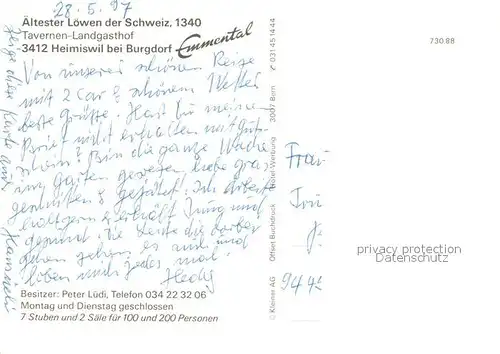 28.5.97
Ältester Löwen der Schweiz, 1340
Tavernen-Landgasthof
3412 Heimiswil bei Burgdorf Emmental
Von unserer schönen Reise
mit 2 Car & schönem Wetter
beste Grüsse. Hast Du meinen
Brief nicht erhalten mit Gut-
schein? Bin die ganze Woche
im Garten gewesen habe gras
geschnitten & gejätet. Ich arbeite
& erhält Jung und
gesund. Die Leute die vorbei
gehen sehen es und
loben mich jedes mal.
Hedy
Zeige diese Karte auch
Hansueli
Besitzer: Peter Lüdi, Telefon 034 22 32 06
Montag und Dienstag geschlossen
7 Stuben und 2 Säle für 100 und 200 Personen
© Kleiner AG Offset Buchdruck Hotel-Werbung 3007 Bern ✆ 031 45 14 44
730.88
Frau
944
privacy protection
Datenschutz